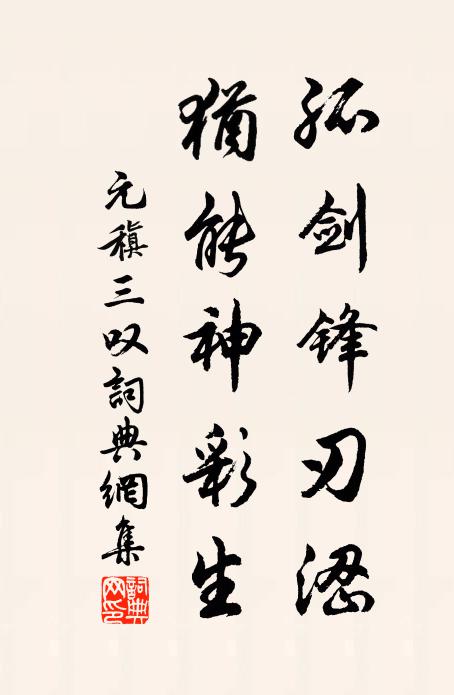 孤剑锋刃涩
猶能神彩生
元稹三叹詞典網集
詞典
网印